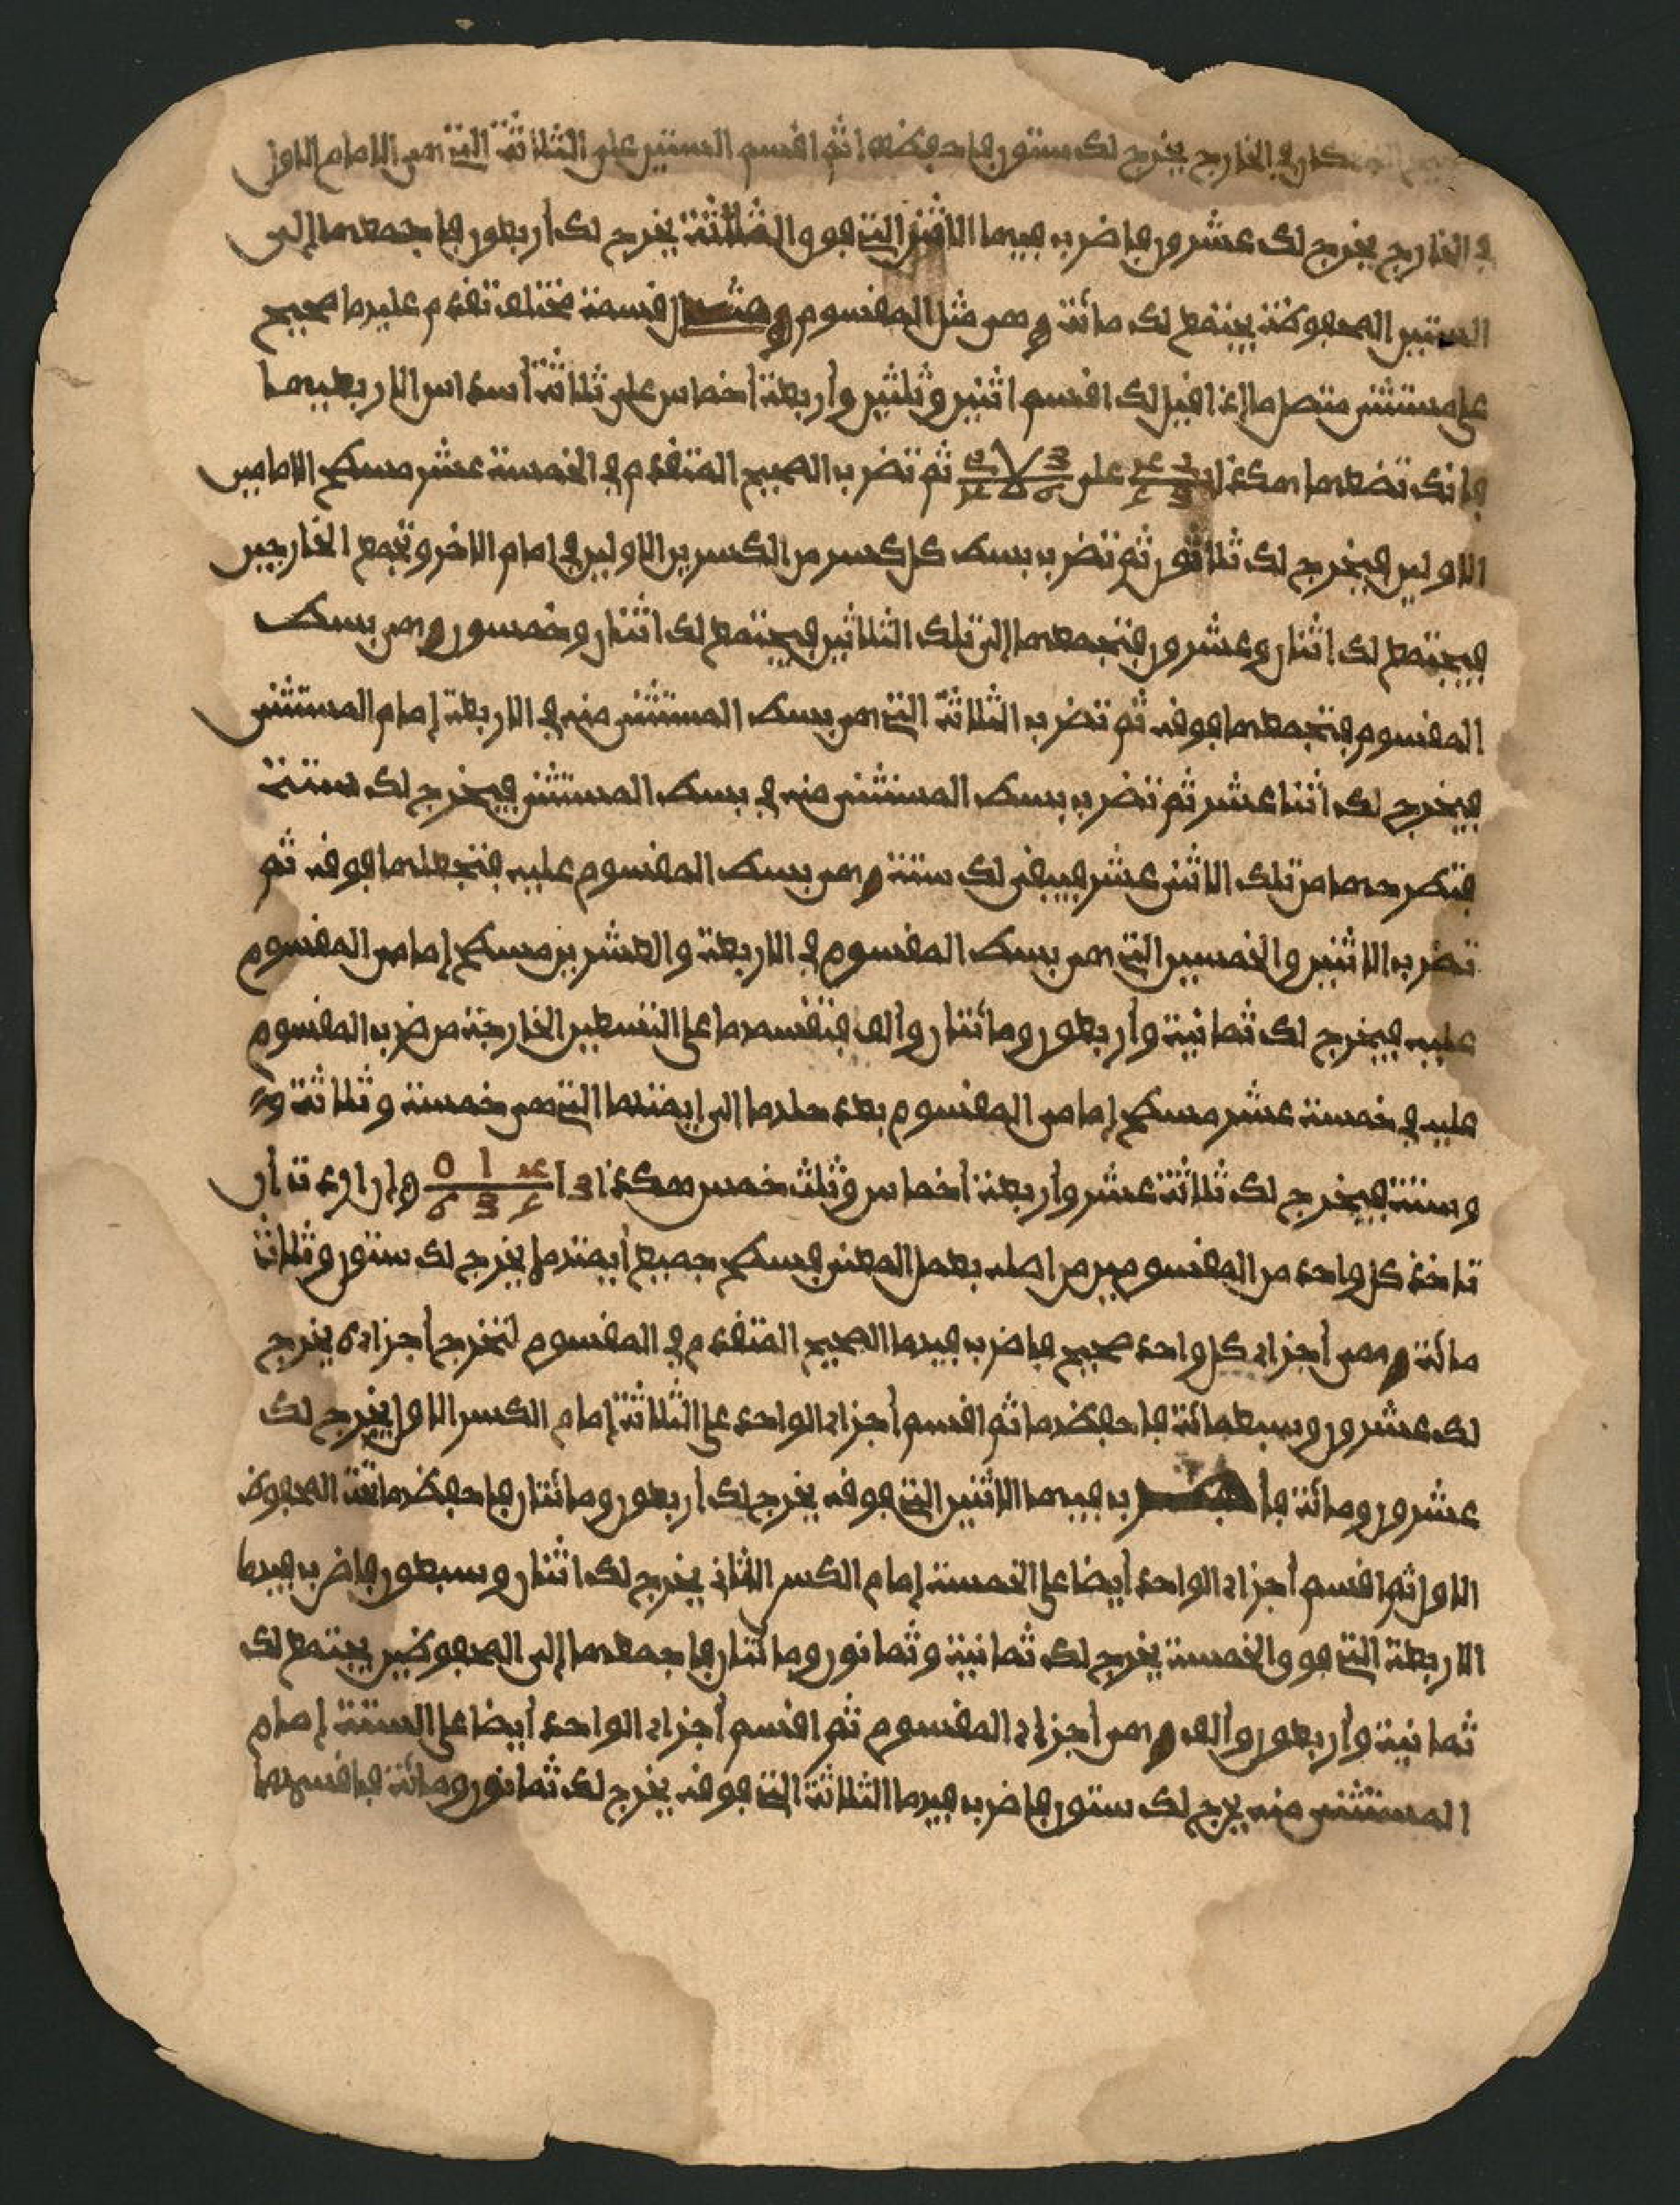 كان في الخارج يخرج لك ستون فاحفظها ثم اقسم الستين على الثلاثة التي هي الإمام الأول
في الخارج يخرج لك عشرون فاضرب فيها الاثنين التي فوق الثلاثة يخرج لك أربعون فاجمعها إلى
الستين المحفوظة يجتمع لك مائة وهي مثل المقسوم و قسمة مختلف تقدم عليها صحيح
على مستثنى متصل ما إذا قيل لك اقسم اثنين وثلثين وأربعة أخماس على ثلاثة أسداس إلا ربعيها
فإنك تضعها هكذا على ثم تضرب الصحيح المتقدم في الخمسة عشر مسطح الإمامين
الأولين فيخرج لك ثلاثون ثم تضرب بسط كل كسر من الكسرين الأولين في إمام الآخر وتجمع الخارجين
فيجتمع لك اثنان وعشرون فتجمعها إلى تلك الثلاثين فيجتمع لك اثنان وخمسون وهي بسط
المقسوم فتجمعها فوقه ثم تضرب الثلاثة التي هي بسط المستثنى منه في الأربعة إمام المستثنى
فيخرج لك اثنا عشر ثم تضرب بسط المستثنى منه في بسط المستثنى فيخرج لك ستة
فتطرحها من تلك الاثني عشر فيبقى لك ستة وهي بسط المقسوم عليه فتجعلها فوقه ثم
تضرب الاثنين والخمسين التي هي بسط المقسوم في الأربعة والعشرين مسطح إمامي المقسوم
عليه فيخرج لك ثمانية وأربعون ومائتان وألف فتقسمها على التسعين الخارجة من ضرب المقسوم
عليه في خمسة عشر مسطح إمامي المقسوم بعد حلها إلى أيمتها التي هي خمسة وثلاثة و
وستة فيخرج لك ثلاثة عشر وأربعة أخماس وثلث خمس هكذا 13 وإن أردت أن
تأخذ كل واحد من المقسومين من أصله بعمل المعنى فسطح جميع أيمتها يخرج لك ستون وثلاث
مائة وهي أجزاء كل واحد صحيح فاضرب فيها الصحيح المتقدم في المقسوم لتخرج أجزاءه يخرج
لك عشرون وسبعمائة فاحفظها ثم اقسم أجزاء الواحد على الثلاثة إمام الكسر الأول يخرج لك
عشرون ومائة فا ضرب فيها الاثنين التي فوقه يخرج لك أربعون ومائتان فاحفظها تحت المحفوظ
الأول ثم اقسم أجزاء الواحد أيضا على الخمسة إمام الكسر الثاني يخرج لك اثنان وسبعون فاضرب فيها
الأربعة التي فوق الخمسة يخرج لك ثمانية وثمانون ومائتان فاجمعها إلى المحفوظين يجتمع لك
ثمانية وأربعون وألف وهي أجزاء المقسوم ثم اقسم أجزاء الواحد أيضا على الستة إمام
المستثنى منه يخرج لك ستون فاضرب فيها الثلاثة التي فوقه يخرج لك ثمانون ومائة فاقسمها